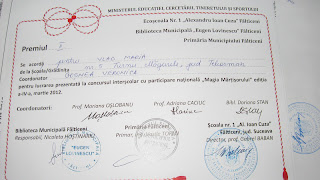 MINISTERUL EDUCAȚIEI, CERCETĂRII, TINERETULUI ȘI SPORTULUI
Ecoșcoala Nr. 1 „Alexandru Ioan Cuza" Fălticeni
Biblioteca Municipală „Eugen Lovinescu" Fălticeni
Primăria Municipiului Fălticeni
Premiul I
Se acordă pentru VLAD MARIA
de la Școala/Grădinița nr. 5 Turnu Măgurele, jud. Teleorman
Coordonator VERONICA
pentru lucrarea prezentată la concursul interșcolar cu participare națională „Magia Mărțișorului" ediția
a-IV-a, martie 2012.
Coordonatori: Prof. Mariana OȘLOBANU Prof. Adriana CACIUC Bibl. Doriana STAN
Biblioteca Municipală Fălticeni
Responsabil, Nicoleta
Primăria Fălticeni
Primar,
Școala nr. 1 „Al. Ioan Cuza"
Fălticeni, jud. Suceava
Director, prof. Gabriel BABAN
"EUGEN
LOVINESCU"